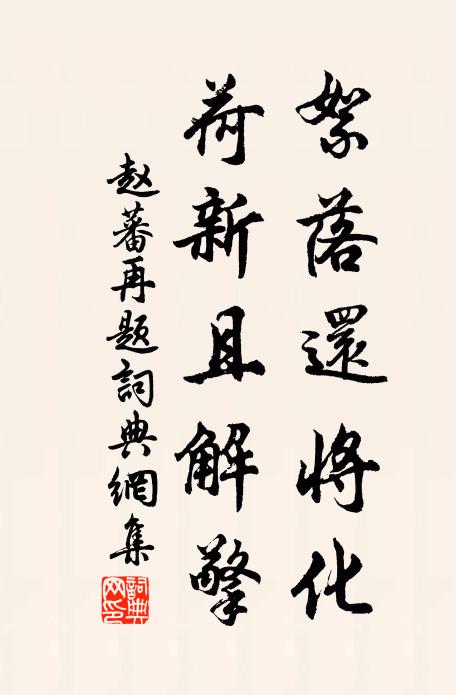 絮落還將化
荷新且解擎
赵蕃再题詞典網集
詞典网印